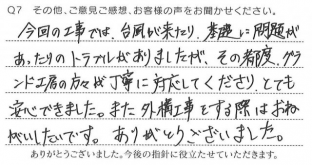 Q7 その他、ご意見ご感想、お客様の声をお聞かせください。
今回の工事では、台風が来たり、基礎に問題が
あったりのトラブルがありましたが、その都度、グラ
ンド工房の方々が丁寧に対応してくださりとても
安心できました。また外構工事をする際はおね
がいしたいです。ありがとうございました。
ありがとうございました。今後の指針に役立たせていただきます。